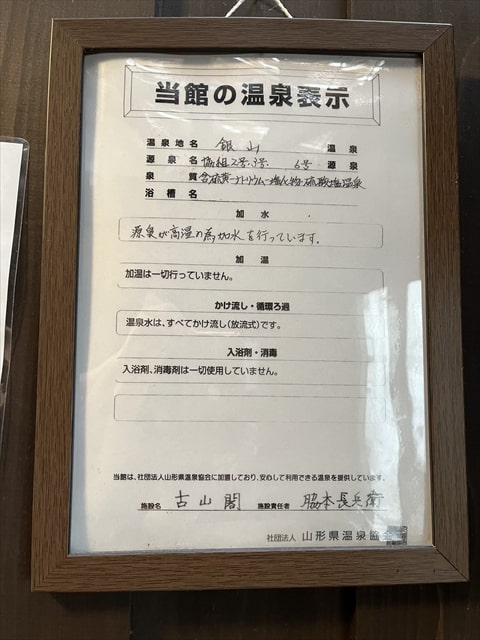 当館の温泉表示
温泉地名 銀山 温泉
源泉名 協組2号・3号・6号 源泉
泉質 含硫黄-ナトリウム-塩化物・硫酸塩温泉
浴槽名
加水
源泉が高温の為加水を行っています。
加温
加温は一切行っていません。
かけ流し・循環ろ過
温泉水は、すべてかけ流し(放流式)です。
入浴剤・消毒
入浴剤、消毒剤は一切使用していません。
当館は、社団法人山形県温泉協会に加盟しており、安心して利用できる温泉を提供しています。
施設名 古山閣 施設責任者 脇本長兵衛
社団法人 山形県温泉協会